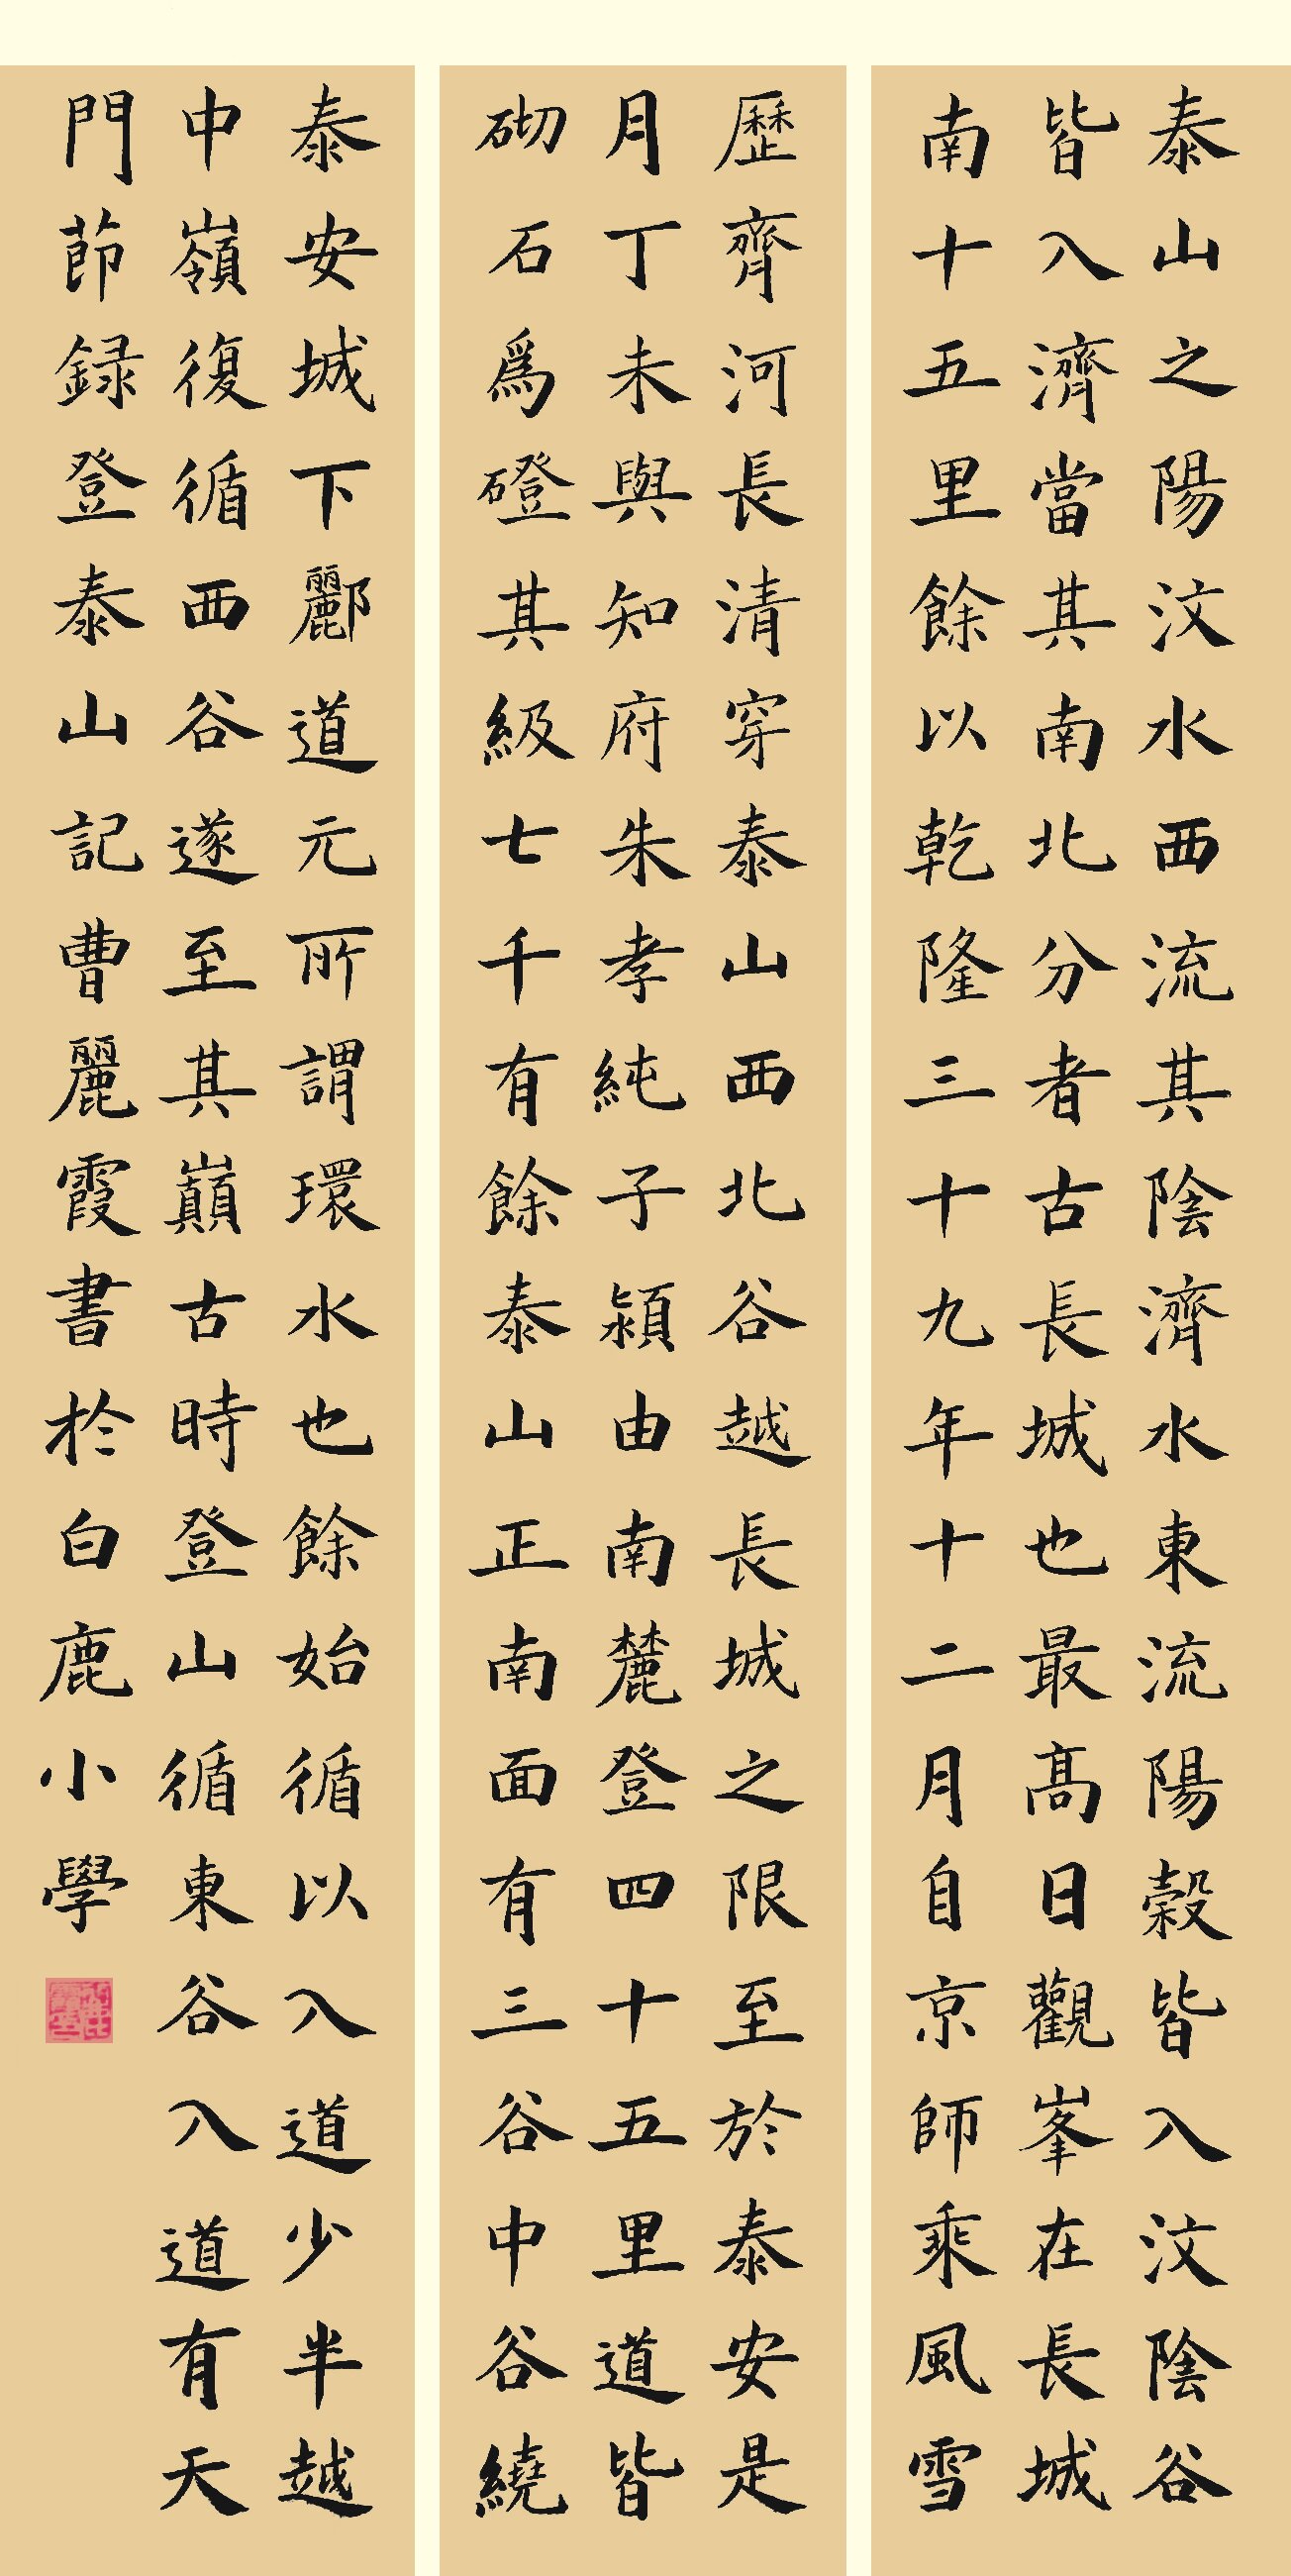 泰山之陽汶水西流其陰濟水東流陽穀皆入汶陰谷
皆入濟當其南北分者古長城也最高日觀峯在長城
南十五里餘以乾隆三十九年十二月自京師乘風雪
歷齊河長清穿泰山西北谷越長城之限至於泰安是
月丁未與知府朱孝純子潁由南麓登四十五里道皆
砌石為磴其級七千有餘泰山正南面有三谷中谷繞
泰安城下酈道元所謂環水也餘始循以入道少半越
中嶺復循西谷遂至其巔古時登山循東谷入道有天
門節録登泰山記曹麗霞書於白鹿小學